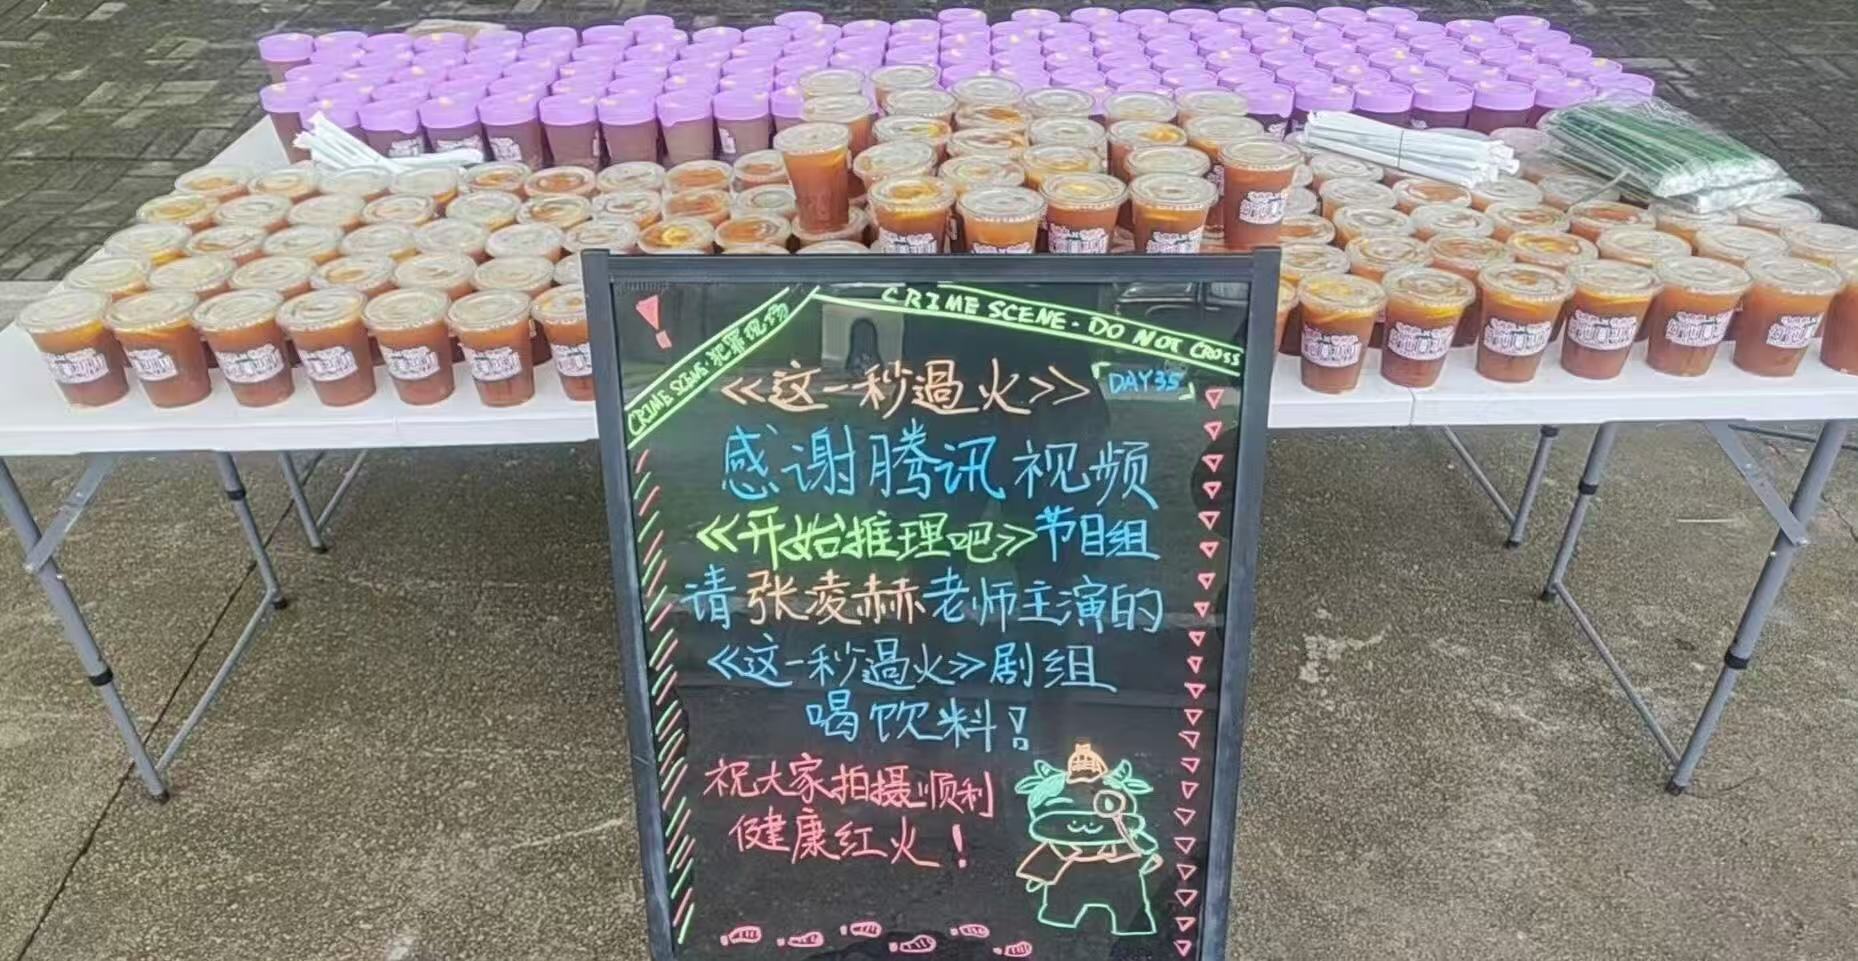 CRIME SCENE · DO NOT CROSS
CRIME SCENE · 犯罪现场
《这一秒過火》
DAY35
感谢腾讯视频
《开始推理吧》节目组
请张凌赫老师主演的
《这一秒過火》剧组
喝饮料！
祝大家拍摄顺利
健康红火！